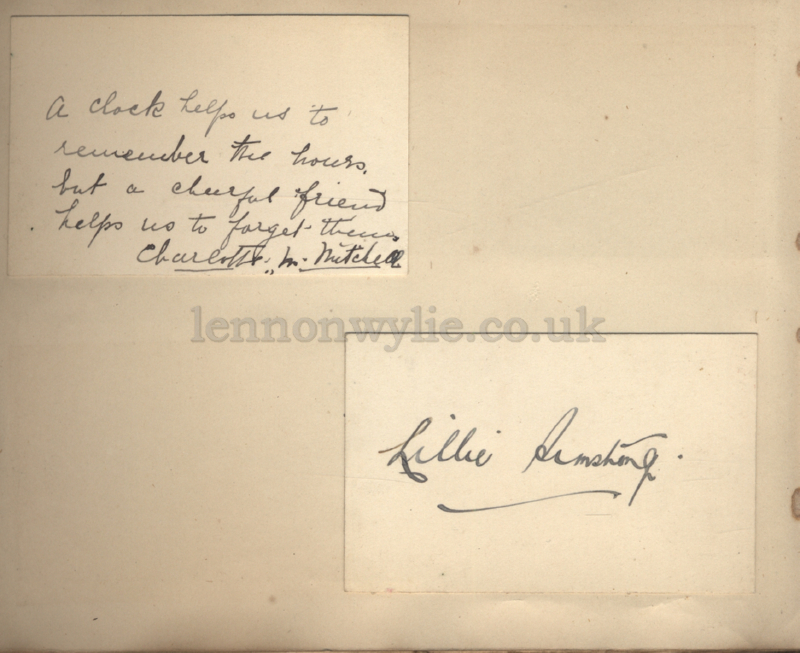 A clock helps us to
remember the hours,
but a cheerful friend
helps us to forget them
Charlotte M. Mitchell
lennonwylie.co.uk
Lillie Armstrong.